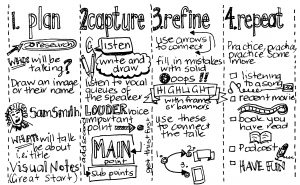 1. plan
research
WHO will be
talking?
Draw an image
or their name.
Sam Smith
WHAT will talk
be about
i.e. title
Visual Notes
(Great Start)
2. capture
listen
write and
draw
listen to vocal
queues of
the speaker
LOUDER voice =
important
point
MAIN
point
sub points
3. refine
use arrows
to connect
fill in mistakes
with solid
OOPS!!
HIGHLIGHT
with frames
or banners
use these to
connect
the talk
1.
2.
3.
4. repeat
Practice, practice,
practice some
more
listening
to a song
recent movie
book you
have read
Podcast
HAVE FUN